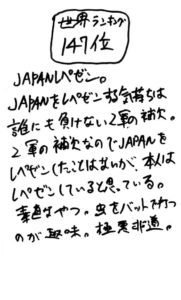 世界ランキング
147位
JAPANレペゼン。
JAPANをレペゼンする気持ちは
誰にも負けない2軍の補欠。
2軍の補欠なのでJAPANを
レペゼンしたことはないが、本人は
レペゼンしていると思っている。
素直なやつ。虫をバットでわつ
のが趣味。極悪非道。